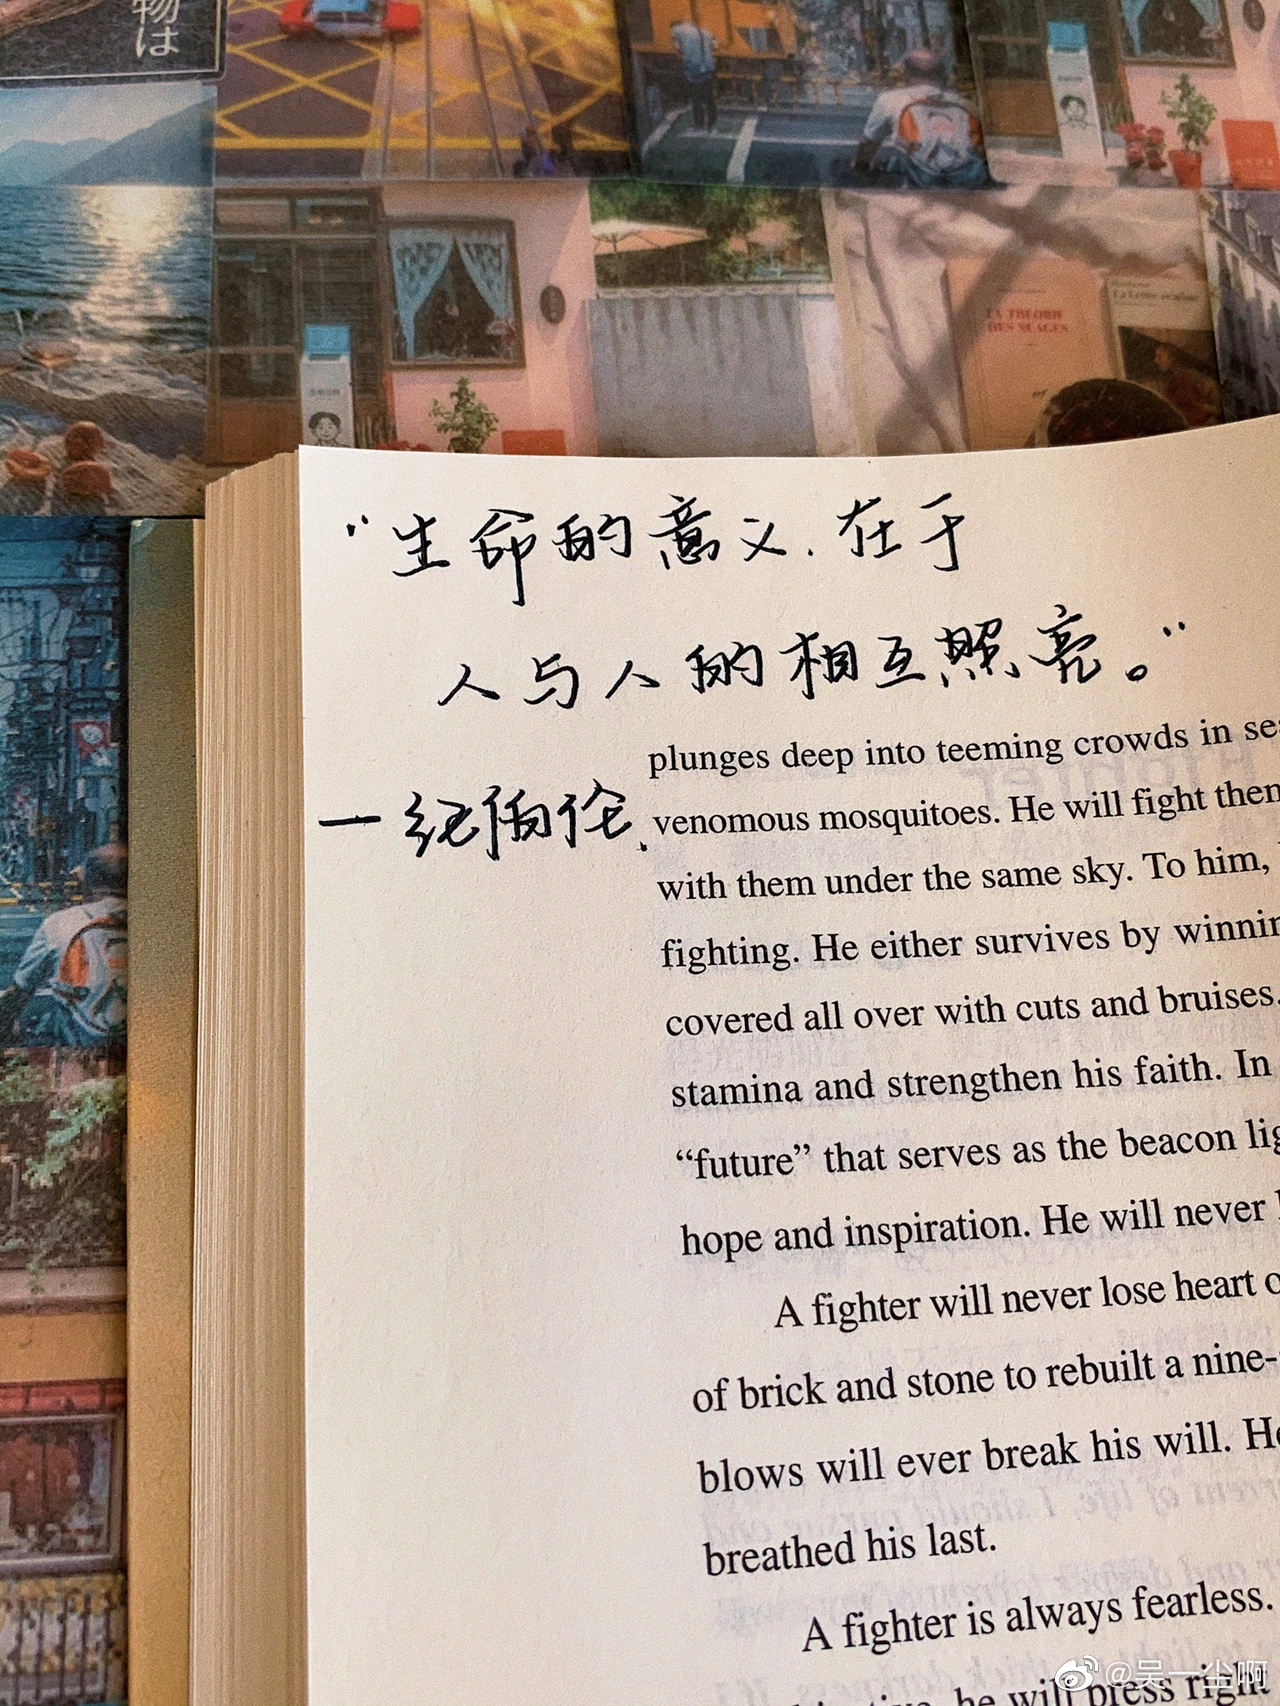 物は
LA THEORIE
DES NUAGES
"生命的意义.在于
人与人的相互照亮。"
一纪伯伦.
plunges deep into teeming crowds in
venomous mosquitoes. He will fight them
with them under the same sky. To him,
fighting. He either survives by
covered all over with cuts and bruises.
stamina and strengthen his faith. In
“future” that serves as the beacon
hope and inspiration. He will never
A fighter will never lose heart
of brick and stone to rebuilt a nine-
blows will ever break his will. He
breathed his last.
A fighter is always fearless.
he will press right
@吴一尘啊